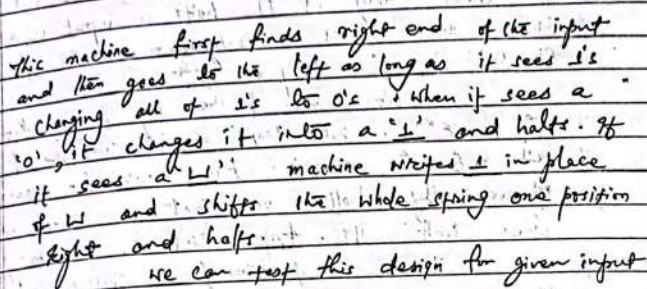 This machine first finds right end of the input
and then goes to the left as long as it sees 1's
changing all of 1's to 0's. When it sees a
'0', it changes it into a '1' and halts. If
it sees a '⊔' machine writes 1 in place
of ⊔ and shifts the whole string one position
right and halts.
we can test this design for given input